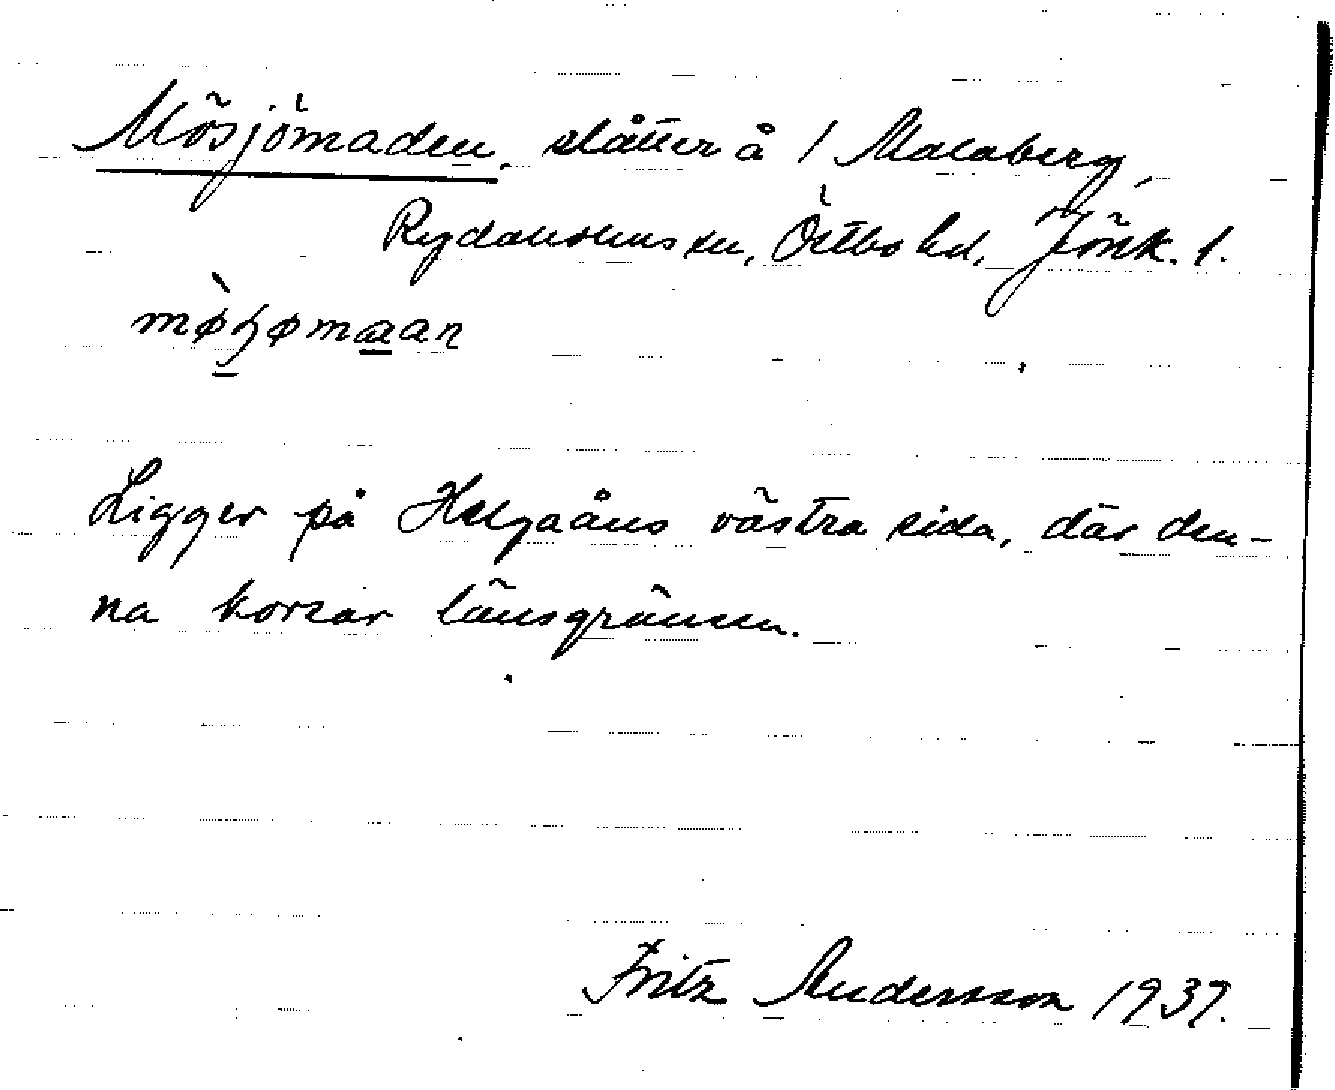 Mösjömaden, slåtter å 1 Malaberg,
Rydaholms sn, Östbo hd, Jönk. l.
Ligger på Helgaåns västra sida, där den-
na korsar länsgränsen.
Fritz Andersson 1937.